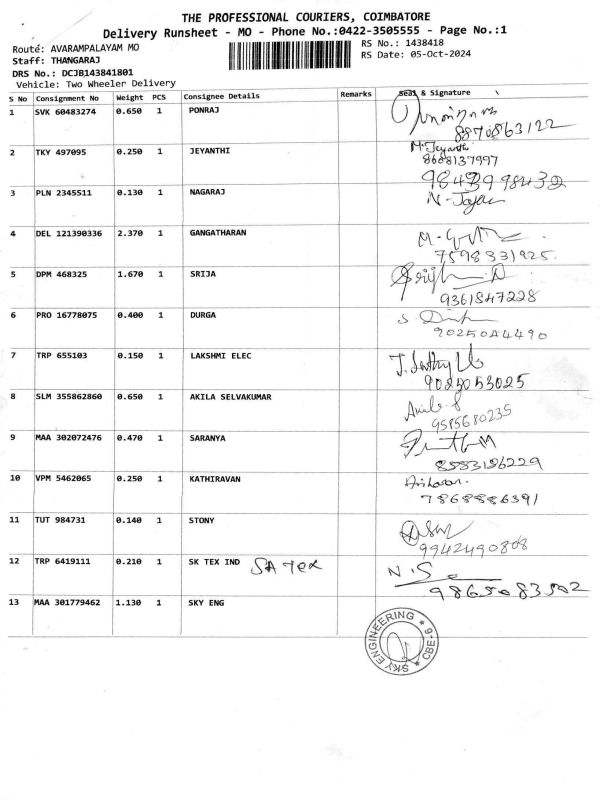 THE PROFESSIONAL COURIERS, COIMBATORE
Delivery Runsheet - MO - Phone No.:0422-3505555 - Page No.:1
Route: AVARAMPALAYAM MO
RS No.: 1438418
Staff: THANGARAJ
RS Date: 05-Oct-2024
DRS No.: DCJB143841801
Vehicle: Two Wheeler Delivery
S No Consignment No Weight PCS Consignee Details Remarks Seal & Signature
1 SVK 60483274 0.650 1 PONRAJ
8870863122
2 TKY 497095 0.250 1 JEYANTHI M. Jeyanthi
8668137997
9843998432
3 PLN 2345511 0.130 1 NAGARAJ
4 DEL 121390336 2.370 1 GANGATHARAN
7598331925.
5 DPM 468325 1.670 1 SRIJA
9361847228
6 PRO 16778075 0.400 1 DURGA
9025044490
7 TRP 655103 0.150 1 LAKSHMI ELEC
9025053025
8 SLM 355862860 0.650 1 AKILA SELVAKUMAR
9585680235
9 MAA 302072476 0.470 1 SARANYA
8583196229
10 VPM 5462065 0.250 1 KATHIRAVAN
7868886391
11 TUT 984731 0.140 1 STONY
9942490808
12 TRP 6419111 0.210 1 SK TEX IND SA Tex N.S
9865083502
13 MAA 301779462 1.130 1 SKY ENG
SKY ENGINEERING * CBE-6 *